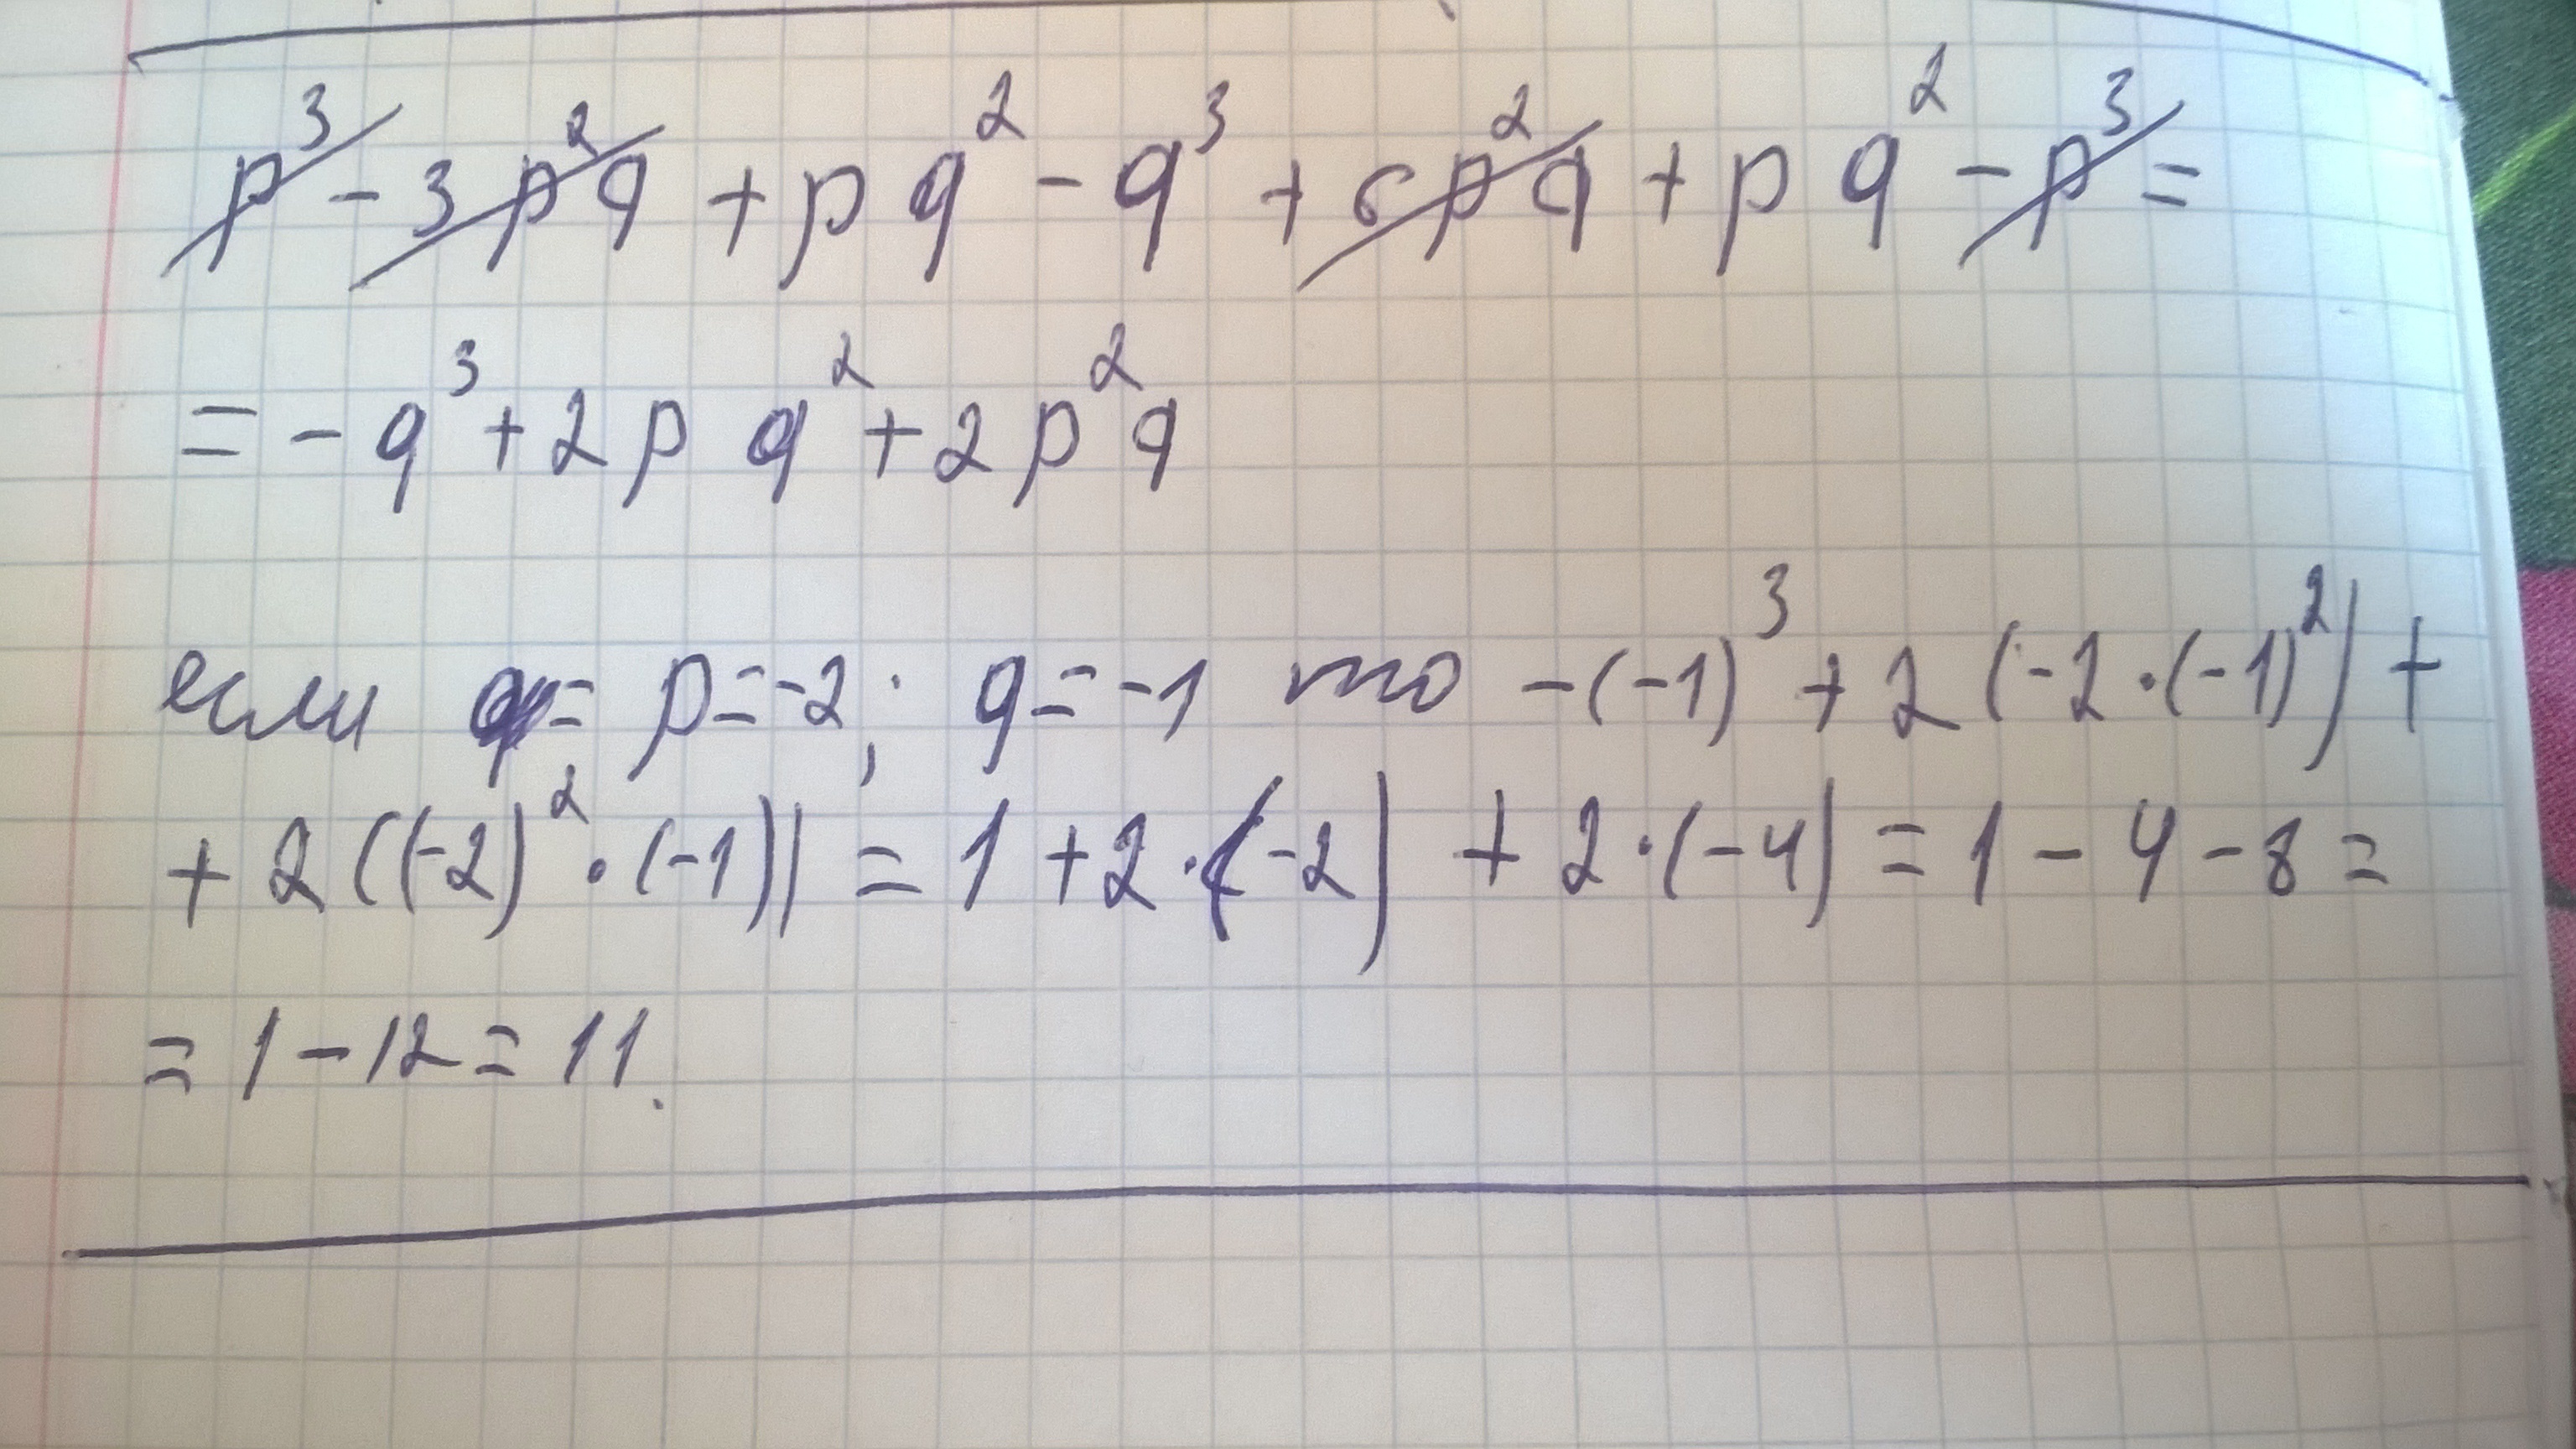 p³ - 3p²q + pq² - q³ + 6p²q + pq² - p³ =
= - q³ + 2pq² + 2p²q
если q= p=-2; q=-1 то -(-1)³ + 2(-2·(-1)²) +
+ 2((-2)²·(-1)) = 1 + 2·(-2) + 2·(-4) = 1 - 4 - 8 =
= 1 - 12 = 11.